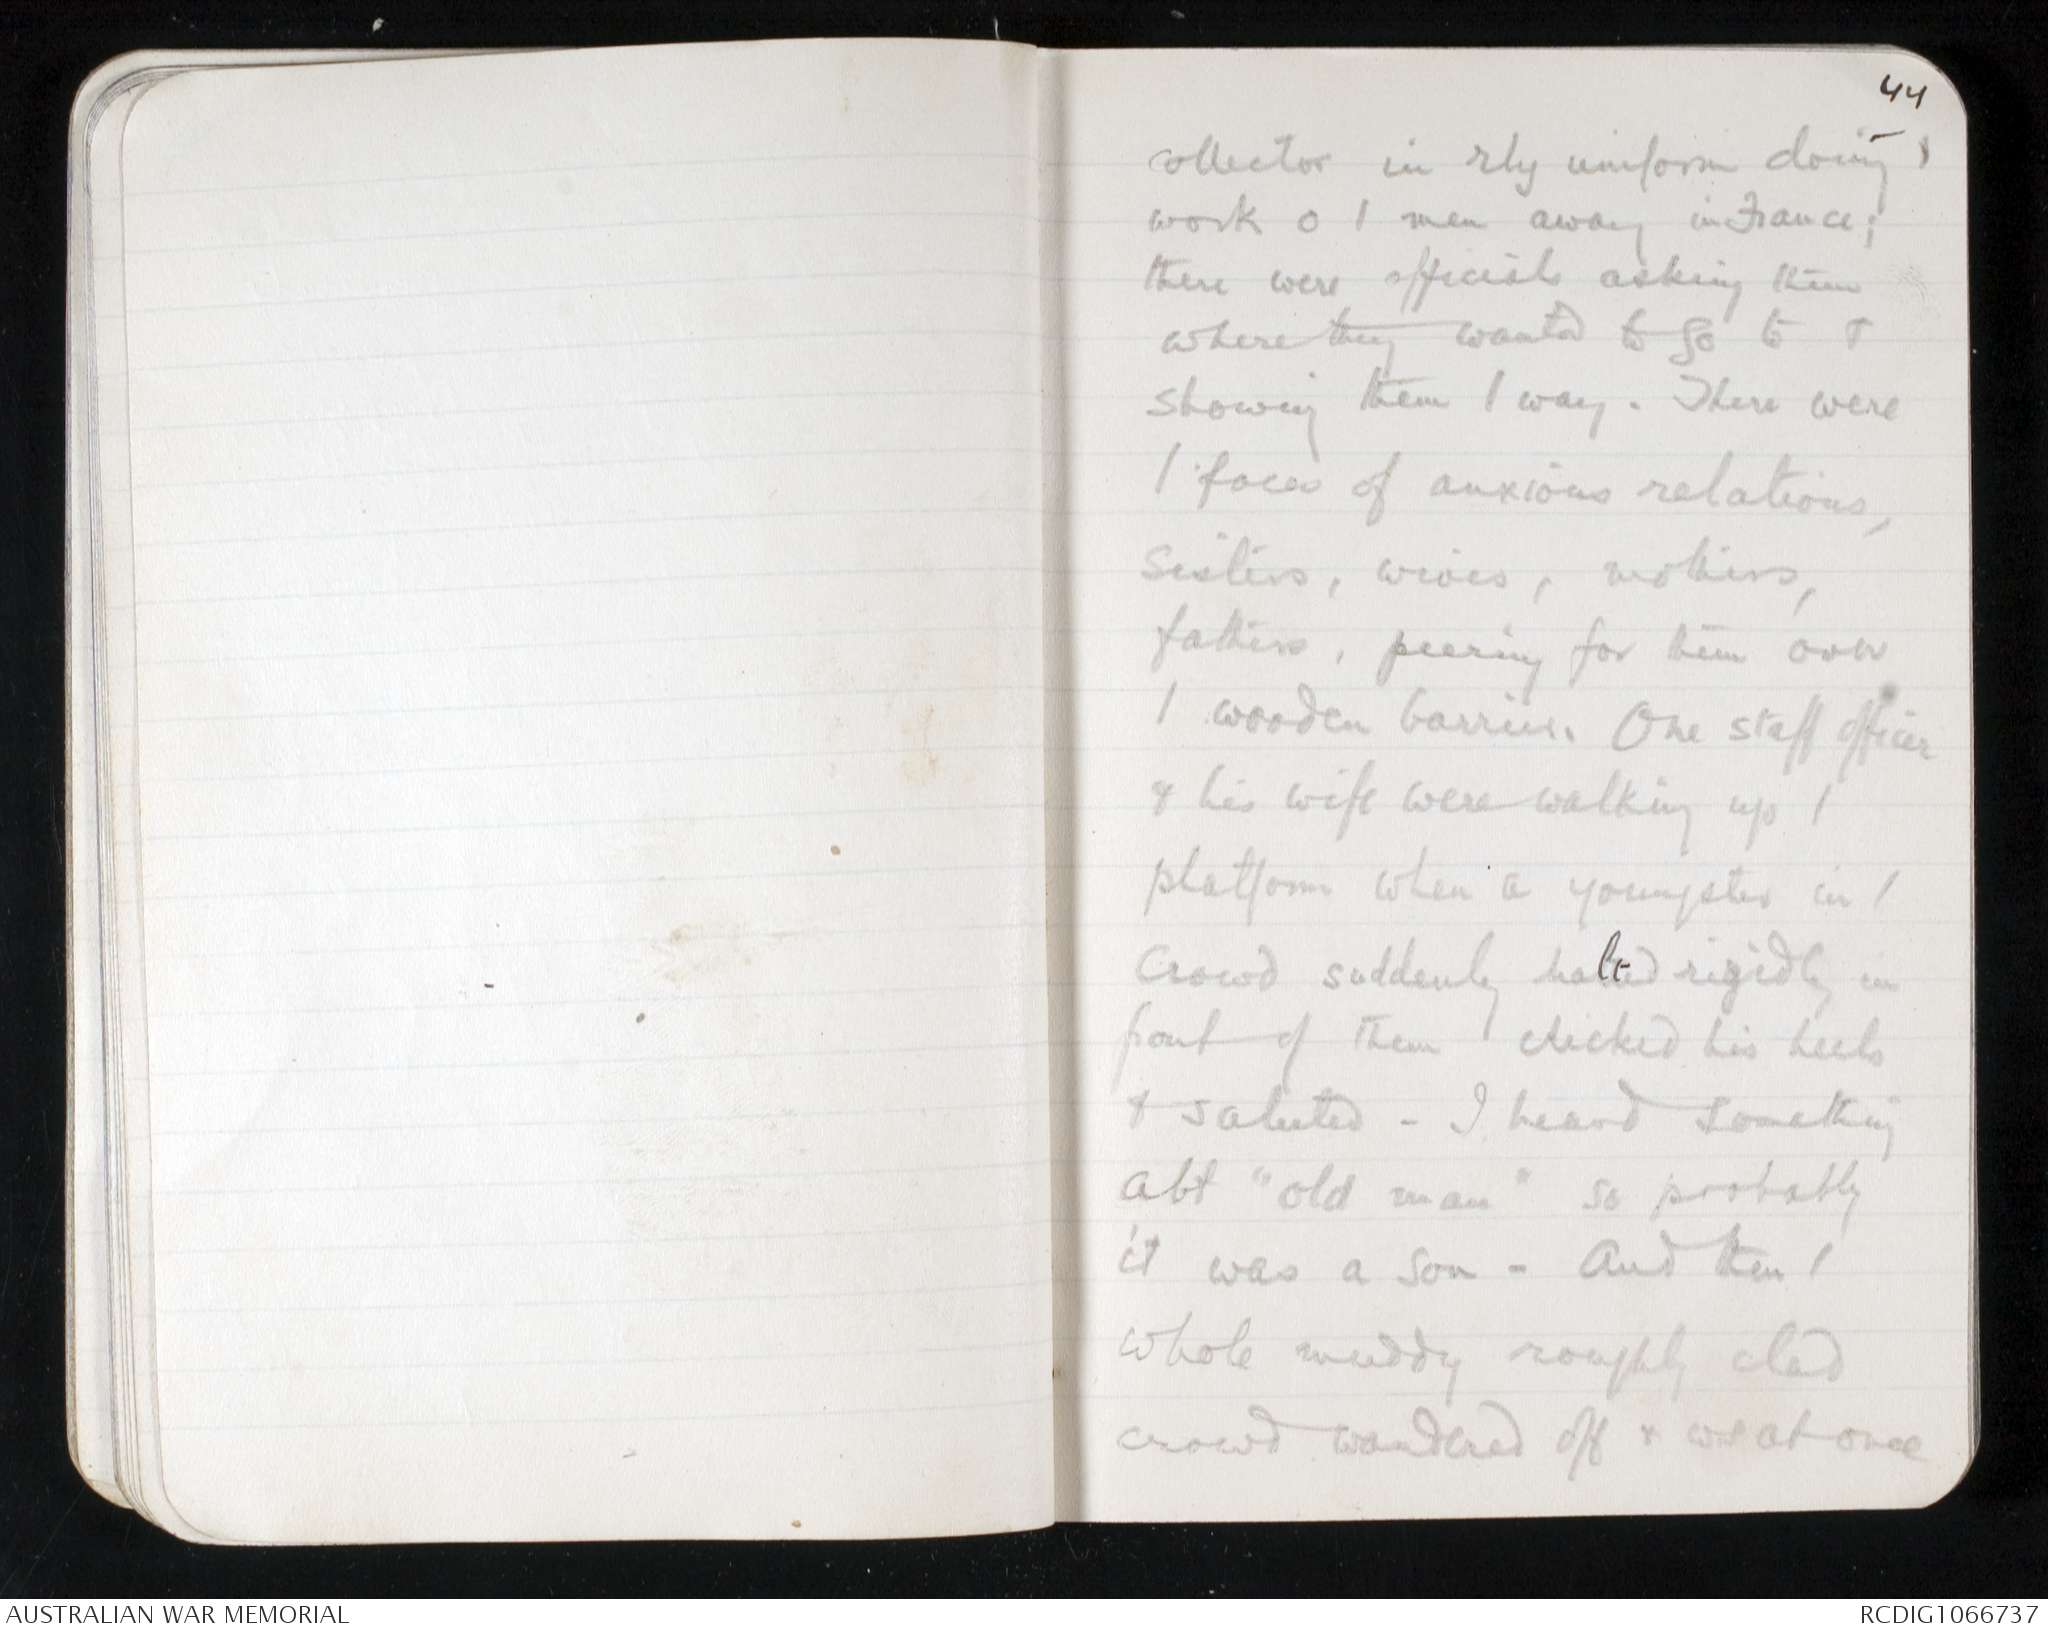 44
collector in rly uniform doing /
work o / men away in France;
there were officials asking them
where they wanted to go to &
showing them / way. There were
/ faces of anxious relations,
sisters, wives, mothers,
fathers, peering for them over
/ wooden barrier. One staff officer
& his wife were walking up /
platform when a youngster in /
crowd suddenly halted rigidly in
front of them clicked his heels
& saluted - I heard something
abt "old man" so probably
it was a son - And then /
whole muddy roughly clad
crowd wandered off & was at once
AUSTRALIAN WAR MEMORIAL
RCDIG1066737